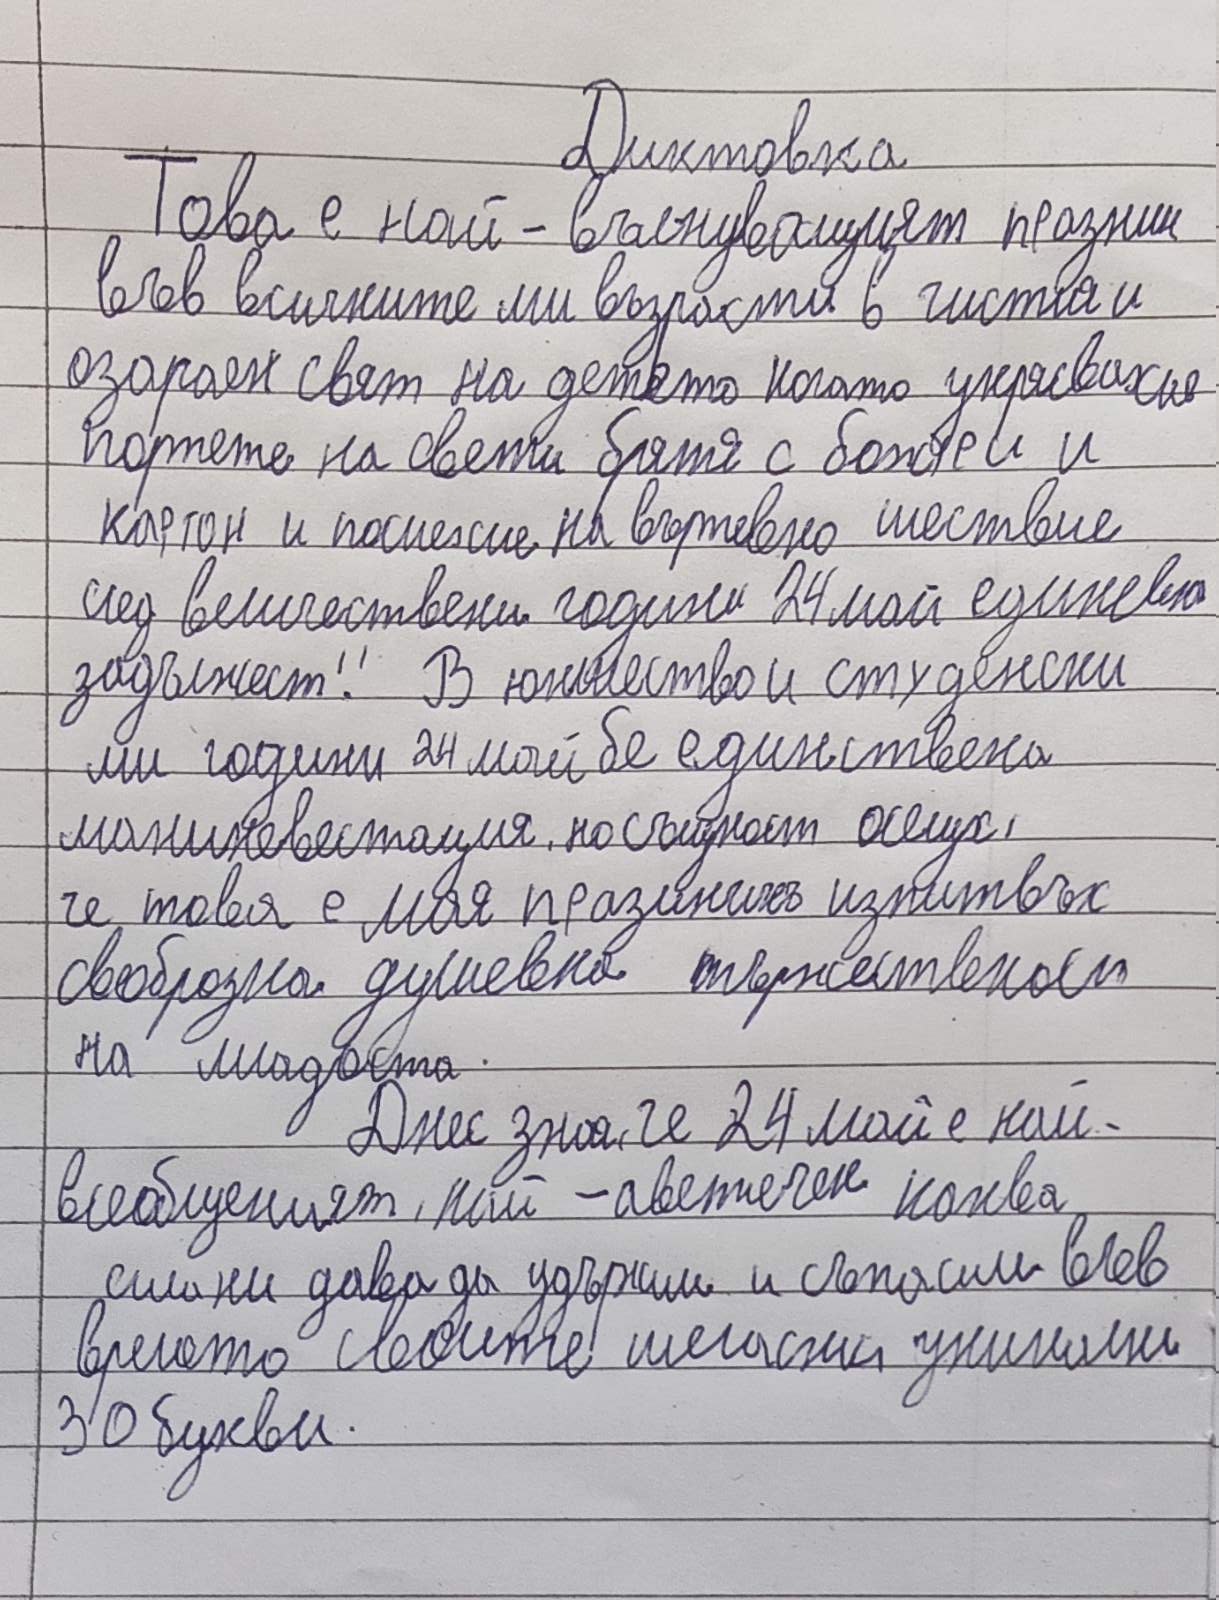 Диктовка
Това е най - власнуващият празник
във всичките ми възрасти в чистия и
озарен свят на детето когато украсвахме
портете на свети братя с божяеи и
картон и посиехме на въртевно шествие
след величествени години 24 май единевна
задължест!! В юншеството и студенски
ми години 24 май бе единствена
манижевестация, но същност осещх,
че товая е моя празиникъ изпитвъх
своброзна душевна тържественост
на младоста.
Днес зная, че 24 май е най-
всеобщеният, най - аветечен каква
сила ни дава да удържим и съпасим във
времето своите шегасни уникални
30 букви.